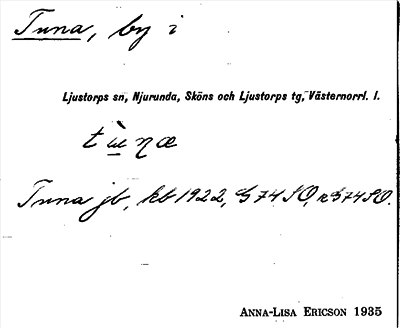 Tuna, by i
Ljustorps sn, Njurunda, Sköns och Ljustorps tg, Västernorrl. l.
Tuna jb, kb 1922, G 74 SO,
ANNA-LISA ERICSON 1935